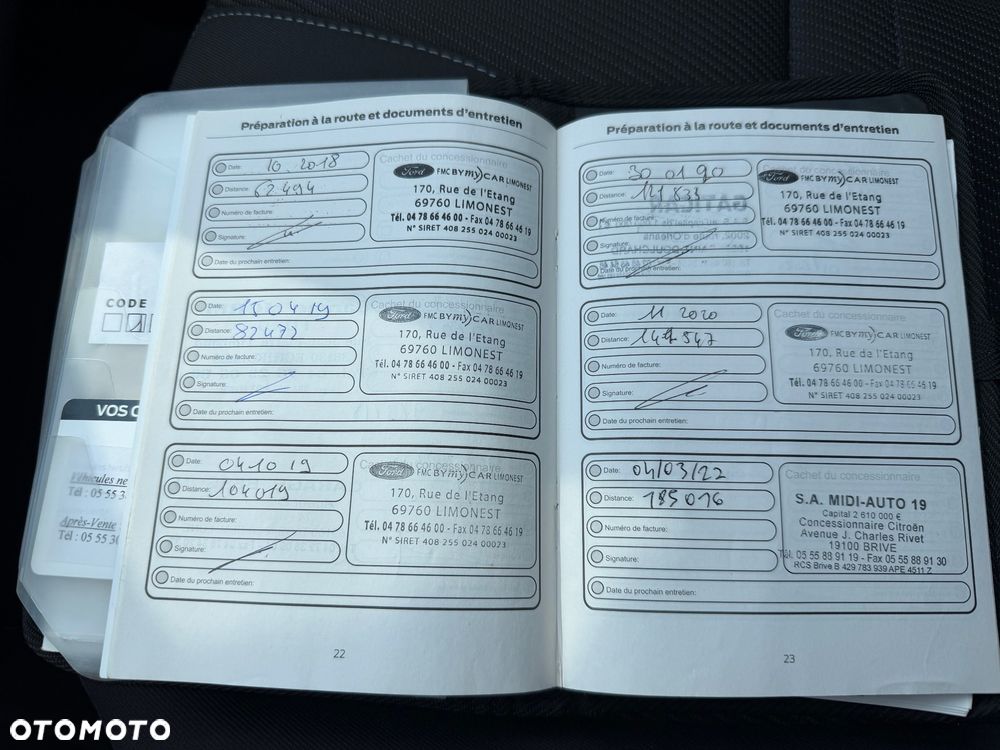 Préparation à la route et documents d'entretien
Date: 10. 2018
Distance: 62494
Numéro de facture:
Signature:
Date du prochain entretien:
Cachet du concessionnaire
Ford FMC BY my CAR LIMONEST
170, Rue de l'Etang
69760 LIMONEST
Tél. 04 78 66 46 00 - Fax 04 78 66 46 19
N° SIRET 408 255 024 00023
Date: 15 04 19
Distance: 82472
Numéro de facture:
Signature:
Date du prochain entretien:
Cachet du concessionnaire
Ford FMC BY my CAR LIMONEST
170, Rue de l'Etang
69760 LIMONEST
Tél. 04 78 66 46 00 - Fax 04 78 66 46 19
N° SIRET 408 255 024 00023
Date: 04 10 19
Distance: 104019
Numéro de facture:
Signature:
Date du prochain entretien:
Cachet du concessionnaire
Ford FMC BY my CAR LIMONEST
170, Rue de l'Etang
69760 LIMONEST
Tél. 04 78 66 46 00 - Fax 04 78 66 46 19
N° SIRET 408 255 024 00023
22
Préparation à la route et documents d'entretien
Date: 30 01 90
Distance:
Numéro de facture:
Signature:
Date du prochain entretien:
Cachet du concessionnaire
Ford FMC BY my CAR LIMONEST
170, Rue de l'Etang
69760 LIMONEST
Tél. 04 78 66 46 00 - Fax 04 78 66 46 19
N° SIRET 408 255 024 00023
Date: 11 2020
Distance:
Numéro de facture:
Signature:
Date du prochain entretien:
Cachet du concessionnaire
Ford FMC BY my CAR LIMONEST
170, Rue de l'Etang
69760 LIMONEST
Tél. 04 78 66 46 00 - Fax 04 78 66 46 19
N° SIRET 408 255 024 00023
Date: 04/03/22
Distance: 185016
Numéro de facture:
Signature:
Date du prochain entretien:
Cachet du concessionnaire
S.A. MIDI-AUTO 19
Capital 2 610 000 €
Concessionnaire Citroën
Avenue J. Charles Rivet
19100 BRIVE
Tél. 05 55 88 91 19 - Fax 05 55 88 91 30
RCS Brive B 429 783 939 APE 4511 Z
23
CODE
VOS
Véhicules ne
Tél : 05 55 3
Après-Vente
Tél : 05 55 30
OTOMOTO